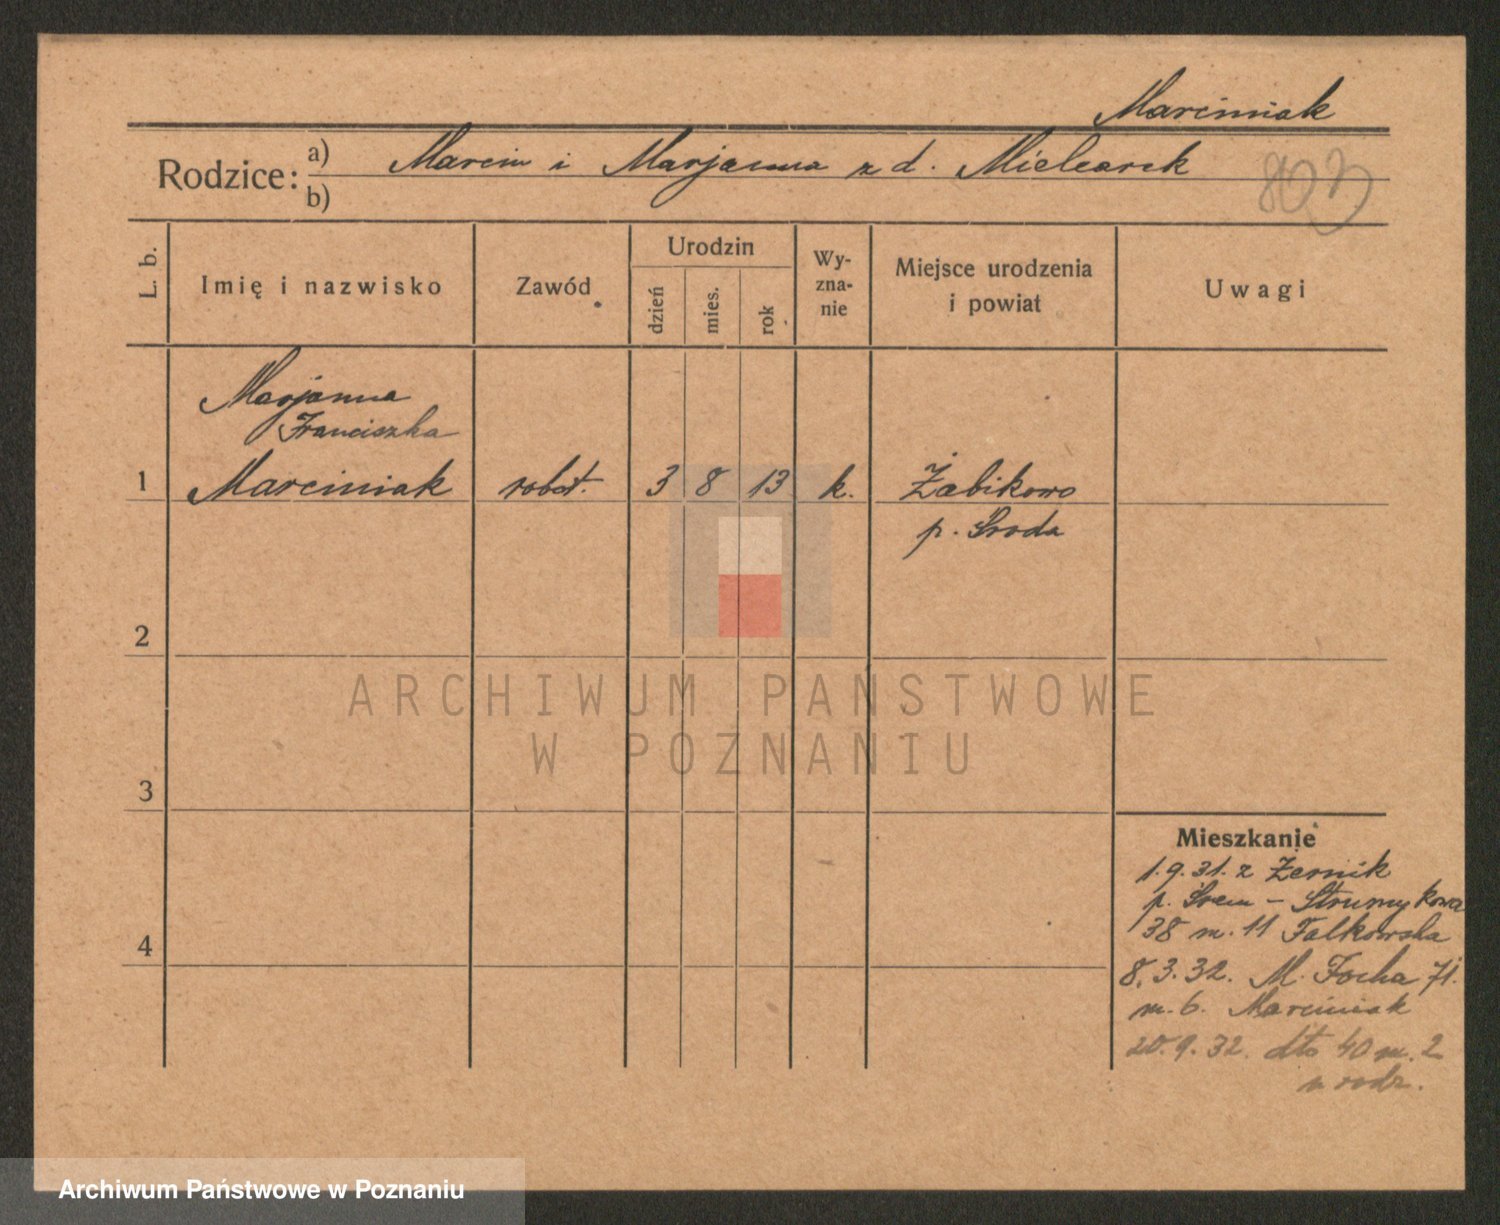 Marciniak
Rodzice: a) Marcin i Marjanna z d. Mielcarek
b)
803
L. b.
Imię i nazwisko
Zawód
Urodzin
dzień
mies.
rok
Wy-
zna-
nie
Miejsce urodzenia
i powiat
Uwagi
Marjanna
Franciszka
1 Marciniak robot. 3 8 13 k. Żabikowo
p. Środa
2
ARCHIWUM PAŃSTWOWE
W POZNANIU
3
Mieszkanie
1.9.31. z Żernik
p. Śrem - Strumykowa
38 m. 11 Falkowska
4
8.3.32. M. Focha 71.
m. 6. Marciniak
20.9.32. dto 40 m. 2
u rodz.
Archiwum Państwowe w Poznaniu